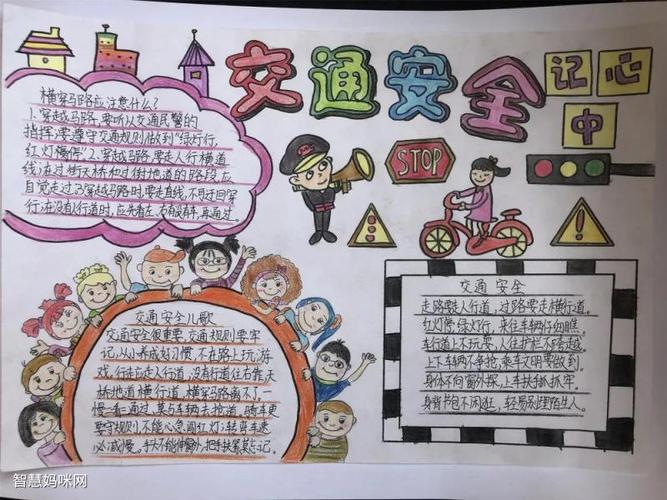 交通安全
记心中
横穿马路应注意什么?
1.穿越马路,要听从交通民警的
指挥;要遵守交通规则做到"绿灯行,
红灯停"。2.穿越马路,要走人行横道
线;在过街天桥和过街地道的路段,应
自觉走过3.穿越马路时,要走直线,不可迂回穿
行;在没人行道时,应先看左,右有没有车,再通过。
STOP
交通安全儿歌
交通安全很重要,交通规则要牢
记,从小养成好习惯,不在路上玩游
戏,行走应走人行道,没有行道往右靠,天
桥地道横行道,横穿马路离不了,一
慢二看三通过,莫与车辆去抢道,骑车更
要守规则,不能心急闯红灯;转弯车速
必减慢。手头不能伸窗外,把手扶紧莫忘记。
交通 安全
走路要走人行道,过路要走横行道。
红灯停绿灯行,来往车辆仔细瞧。
车行道上不玩耍,人住护栏不跨越。
上下车辆不争抢,乘车文明要做到。
身体不向窗外探,上车扶把抓牢。
身背书包不闲逛,轻易别理陌生人。
智慧妈咪网